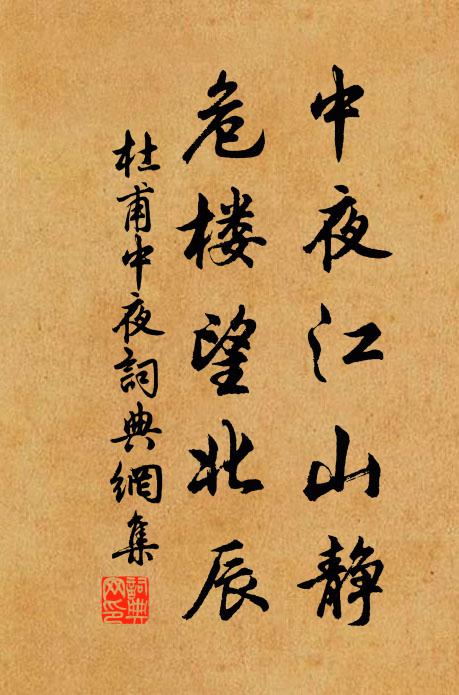 中夜江山静
危楼望北辰
杜甫中夜詞典網集
詞典网印